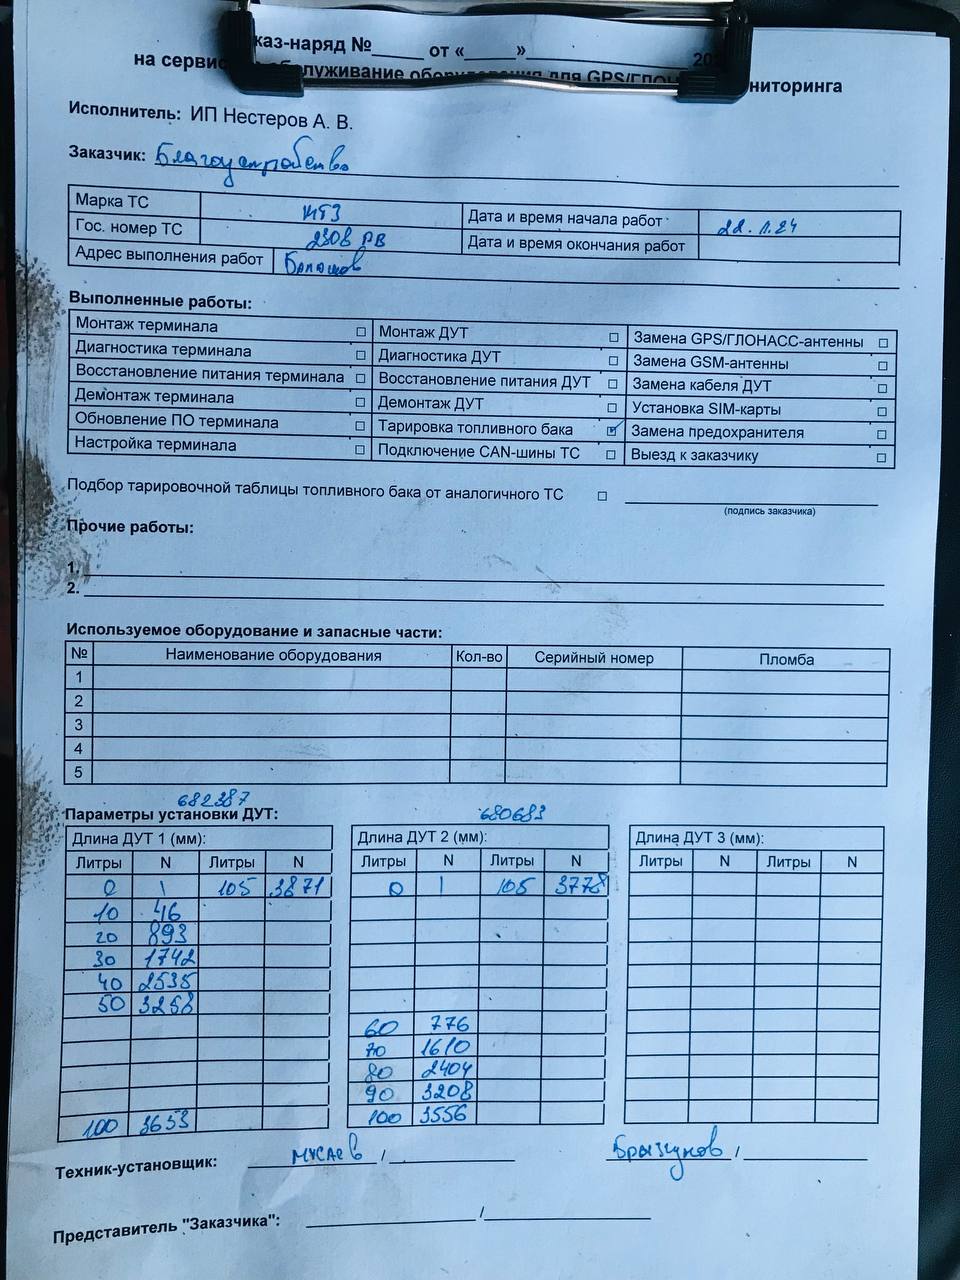 каз-наряд №_____ от «_____»__________ 20
на сервис обслуживание оборудования для GPS/ГЛОН ниторинга
Исполнитель: ИП Нестеров А. В.
Заказчик: Благоустройство
Марка ТС МТЗ Дата и время начала работ 22.11.24
Гос. номер ТС 2308 РВ Дата и время окончания работ
Адрес выполнения работ Балашов
Выполненные работы:
Монтаж терминала □ Монтаж ДУТ □ Замена GPS/ГЛОНАСС-антенны □
Диагностика терминала □ Диагностика ДУТ □ Замена GSM-антенны □
Восстановление питания терминала □ Восстановление питания ДУТ □ Замена кабеля ДУТ □
Демонтаж терминала □ Демонтаж ДУТ □ Установка SIM-карты □
Обновление ПО терминала □ Тарировка топливного бака ☑ Замена предохранителя □
Настройка терминала □ Подключение CAN-шины ТС □ Выезд к заказчику □
Подбор тарировочной таблицы топливного бака от аналогичного ТС □
(подпись заказчика)
Прочие работы:
1.
2.
Используемое оборудование и запасные части:
№ Наименование оборудования Кол-во Серийный номер Пломба
1
2
3
4
5
682387 680683
Параметры установки ДУТ:
Длина ДУТ 1 (мм): Длина ДУТ 2 (мм): Длина ДУТ 3 (мм):
Литры N Литры N Литры N Литры N Литры N Литры N
0 1 105 3871 0 1 105 3778
10 46
20 893
30 1742
40 2535
50 3258
60 776
70 1610
80 2404
90 3208
100 3653 100 3556
Техник-установщик: Мусаев / Брызгунов /
Представитель "Заказчика": /